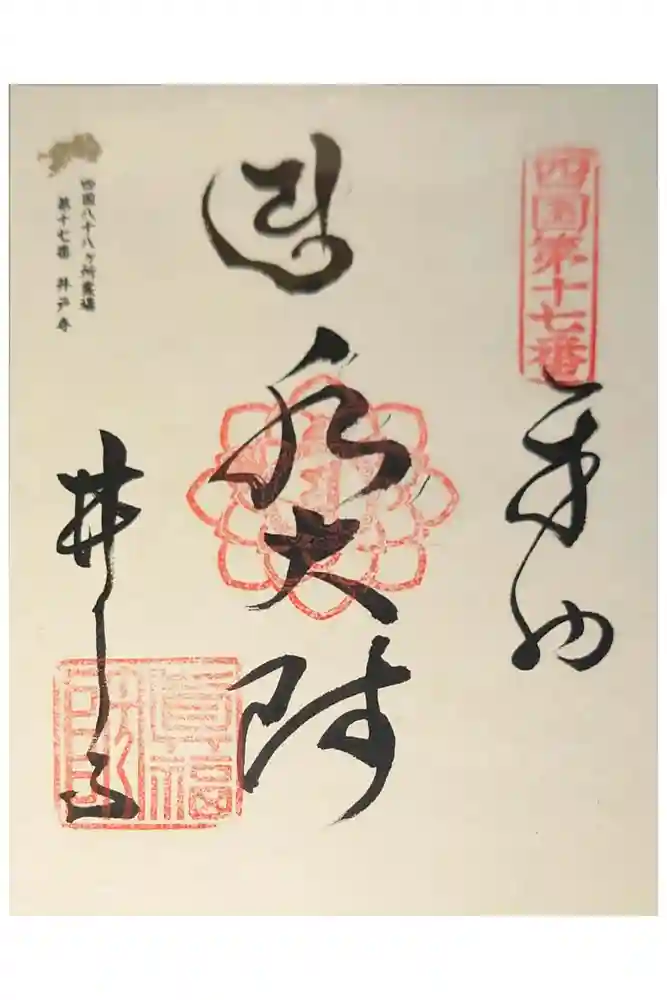 四国第十七番
奉納
大師
四国八十八ヶ所霊場
第十七番 井戸寺
井戸寺
真福